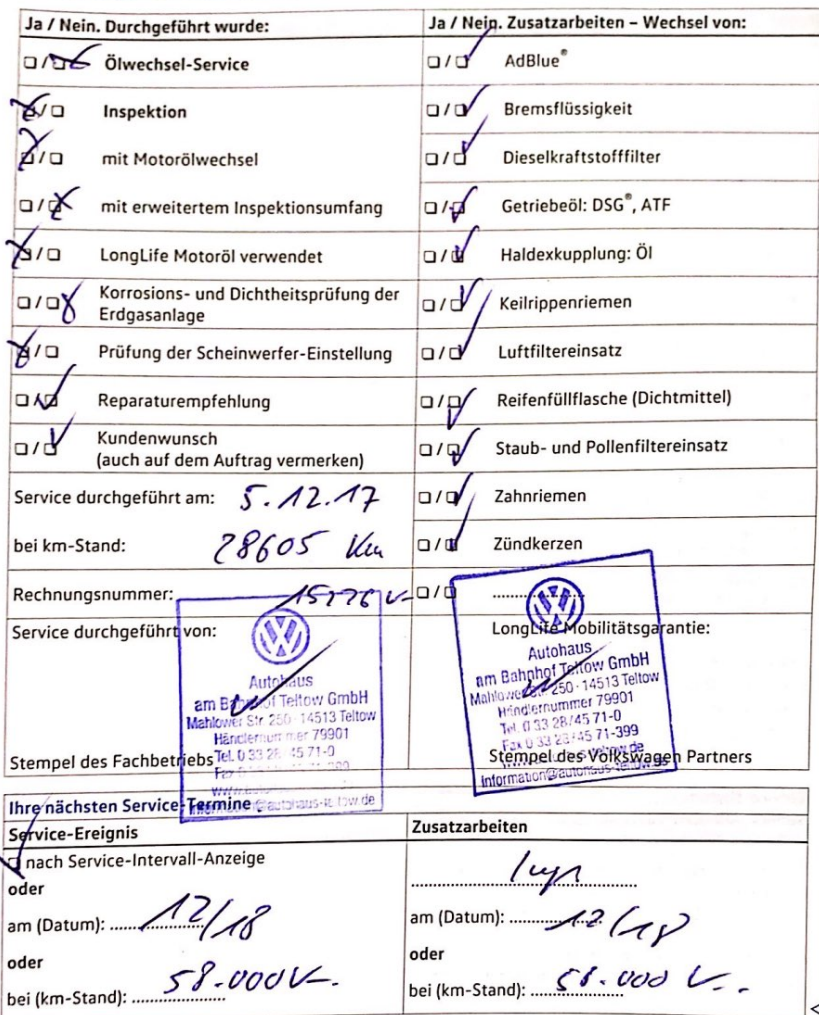 Ja / Nein. Durchgeführt wurde:
Ja / Nein. Zusatzarbeiten – Wechsel von:
Ölwechsel-Service
AdBlue®
Inspektion
Bremsflüssigkeit
mit Motorölwechsel
Dieselkraftstofffilter
mit erweitertem Inspektionsumfang
Getriebeöl: DSG®, ATF
LongLife Motoröl verwendet
Haldexkupplung: Öl
Korrosions- und Dichtheitsprüfung der
Erdgasanlage
Keilrippenriemen
Prüfung der Scheinwerfer-Einstellung
Luftfiltereinsatz
Reparaturempfehlung
Reifenfüllflasche (Dichtmittel)
Kundenwunsch
(auch auf dem Auftrag vermerken)
Staub- und Pollenfiltereinsatz
Service durchgeführt am: 5.12.17
Zahnriemen
bei km-Stand: 28605 Km
Zündkerzen
Rechnungsnummer:
Service durchgeführt von:
LongLife Mobilitätsgarantie:
Autohaus
am Bahnhof Teltow GmbH
Mahlower Str. 250 · 14513 Teltow
Händlernummer 79901
Tel. 0 33 28/45 71-0
Stempel des Fachbetriebs
Autohaus
am Bahnhof Teltow GmbH
Mahlower Str. 250 · 14513 Teltow
Händlernummer 79901
Tel. 0 33 28/45 71-0
Fax 0 33 28/45 71-399
Stempel des Volkswagen Partners
Ihre nächsten Service-Termine
Service-Ereignis
Zusatzarbeiten
nach Service-Intervall-Anzeige
oder
am (Datum): 12/18
am (Datum): 12/18
oder
oder
bei (km-Stand): 58.000
bei (km-Stand): 58.000